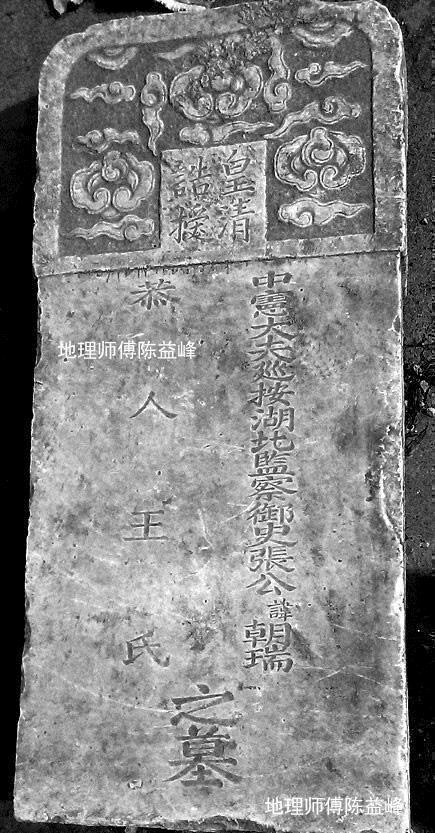 皇清
誥授
中憲大夫巡按湖北監察御史張公諱朝瑞
恭人王氏
之墓
地理师傅陈益峰
地理师傅陈益峰